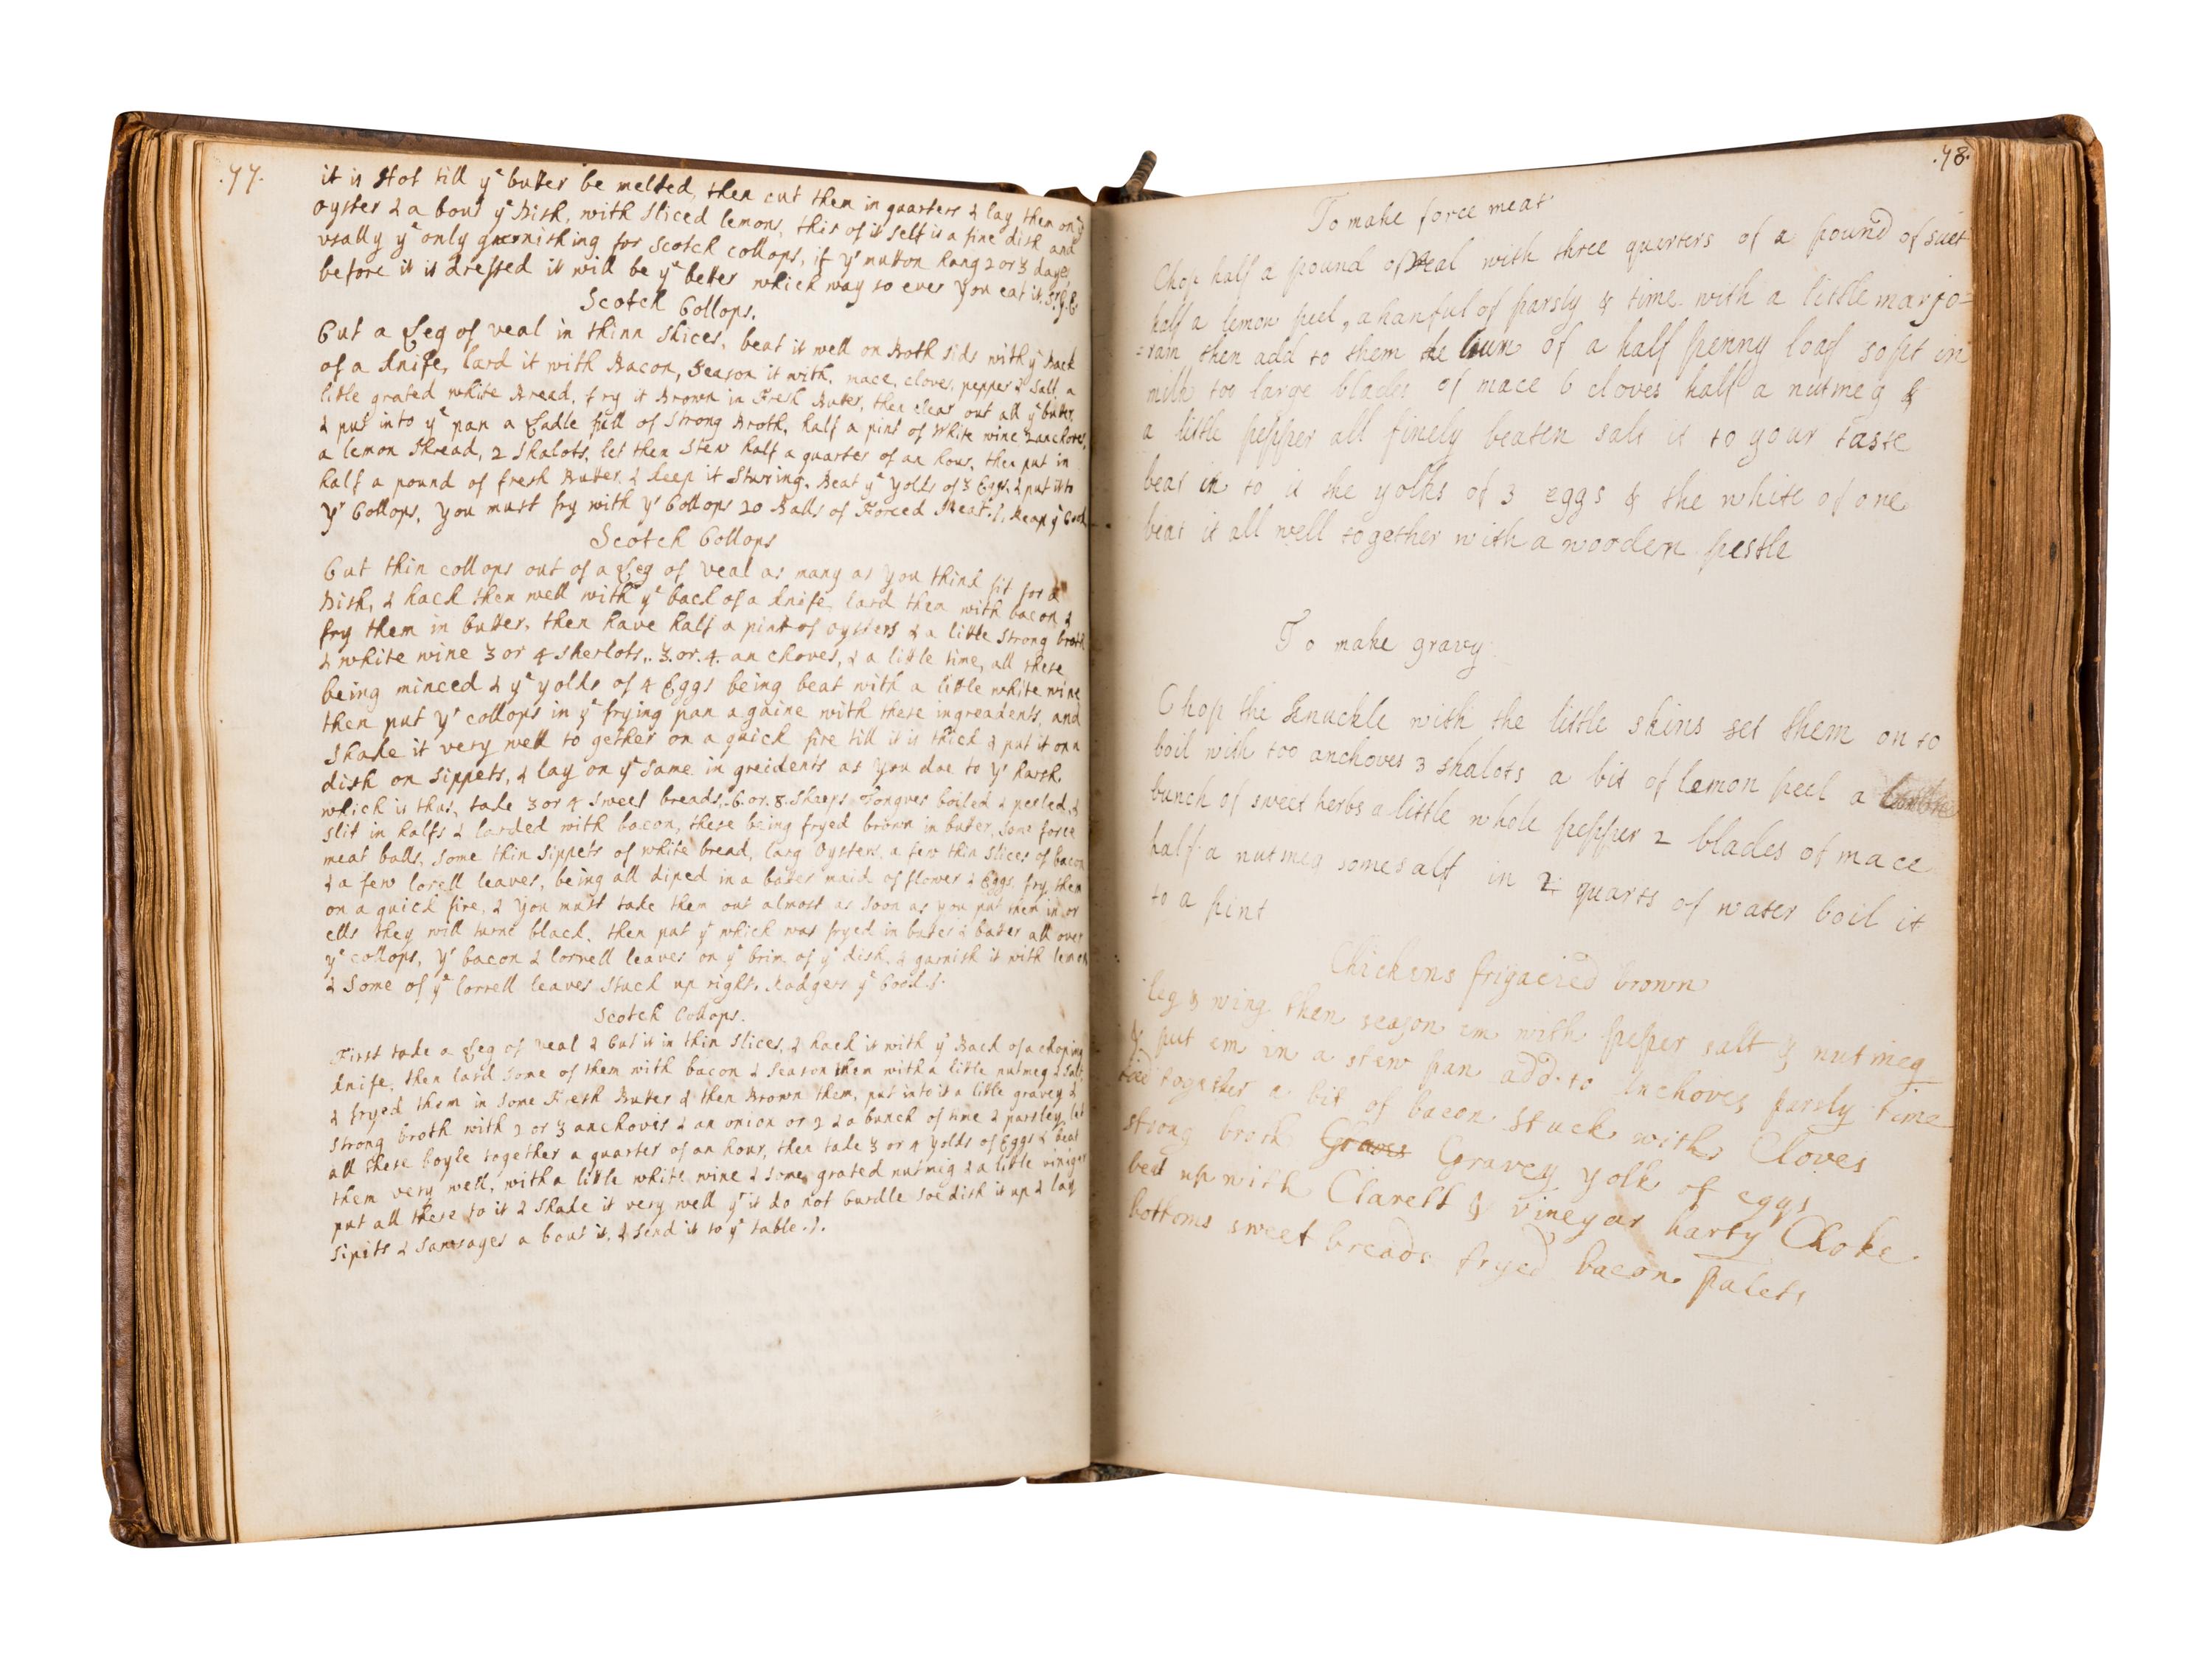 .77.
it is Hot till yᵉ butter be melted, then cut them in quarters & lay them on yᵉ
oyster & a bout yᵉ Dish, with sliced lemons, this of it self is a fine dish and
usally yᵉ only garnishing for Scotch collops, if yʳ mutton hang 2 or 3 dayes
before it is dressed it will be yᵉ better which way so ever you eat it
Scotch Collops.
Cut a Leg of veal in thinn Slices, beat it well on Both sids with yᵉ Back
of a knife, lard it with Bacon, Season it with, mace, cloves, pepper & Salt, a
litle grated white Bread, fry it Brown in Fresh Buter, then clear out all yᵉ buter,
& put into yᵉ pan a Ladle full of Strong Broth, half a pint of White wine 2 anchoves,
a lemon Shread, 2 Shalots, let then Stew half a quarter of an hour, then put in
half a pound of fresh Butter, & keep it Sturing, Beat yᵉ yolks of 3 Eggs, & put it to
yʳ Collops, you must fry with yʳ Collops 20 Balls of Forced Meat.
Scotch Collops
Cut thin collops out of a Leg of veal as many as you think fit for a
Dish, & hack them well with yᵉ back of a knife, lard them with bacon &
fry them in butter, then have half a pint of oysters & a little Strong broth
& white wine 3 or 4 sherlots,. 3. or. 4. an choves, & a little time, all these
being minced & yᵉ yolks of 4 Eggs being beat with a little white wine
then put yʳ collops in yᵉ frying pan againe with these ingreadents, and
Shake it very well to gether on a quick fire till it is thick & put it on a
dish on sippets, & lay on yᵉ same in greidents as you doe to yʳ harsh,
which is thus, take 3 or 4 Sweet breads,.6. or. 8. Sheeps Tongues boiled & peeled, &
slit in halfs & larded with bacon, these being fryed brown in butter, Some force
meat balls, some thin Sippets of white bread, larg Oysters, a few thin slices of bacon
& a few lorell leaves, being all diped in a batter maid of flower & Eggs, fry them
on a quick fire, & you must take them out almost as soon as you put them in or
ells they will turne black, then put yᵗ which was fryed in buter & batter all over
yᵉ collops, yʳ bacon & lorrell leaves on yᵉ brim of yᵉ dish, & garnish it with lemon
& Some of yᵉ lorrell leaves stuck up right. Rodgers yᵉ Cook.
Scotch Collops.
First take a Leg of veal & Cut it in thin slices, & hack it with yᵉ Back of a choping
knife, then lard some of them with bacon & Season them with a little nutmeg & Salt,
& fryed them in Some Fresh Buter & then Brown them, put into it a little gravey &
strong broth with 2 or 3 anchovis & an onion or 2 & a bunch of time & parsley, let
all these boyle together a quarter of an hour, then take 3 or 4 yolks of Eggs & beat
them very well, with a little white wine & some grated nutmig & a little viniger
put all these to it & Shake it very well yᵗ it do not Curdle soe dish it up & lay
Sipits & Sausages a bout it, & Send it to yᵉ table.
.78.
To make force meat
Chop half a pound of Veal with three quarters of a pound of suet
half a lemon peel, a hanful of parsly & time with a little marjo=
=ram then add to them the of a half penny loaf sopt in
milk too large blades of mace 6 cloves half a nutmeg &
a little pepper all finely beaten salt it to your taste
beat in to it the yolks of 3 eggs & the white of one
beat it all well together with a wooden pestle
To make gravy
Chop the Knuckle with the little skins set them on to
boil with too anchoves 3 shalots a bit of lemon peel a
bunch of sweet herbs a little whole pepper 2 blades of mace
half a nutmeg some salt in 2 quarts of water boil it
to a pint
Chickens frigacied brown
leg & wing then season em with pepper salt & nutmeg
& put em in a stew pan add to Anchoves parsly time
tied together a bit of bacon stuck with Cloves
strong broth Graves Gravey yolk of eggs
beat up with Clarett & vinegar harty Choke
bottoms sweet breads fryed bacon palets